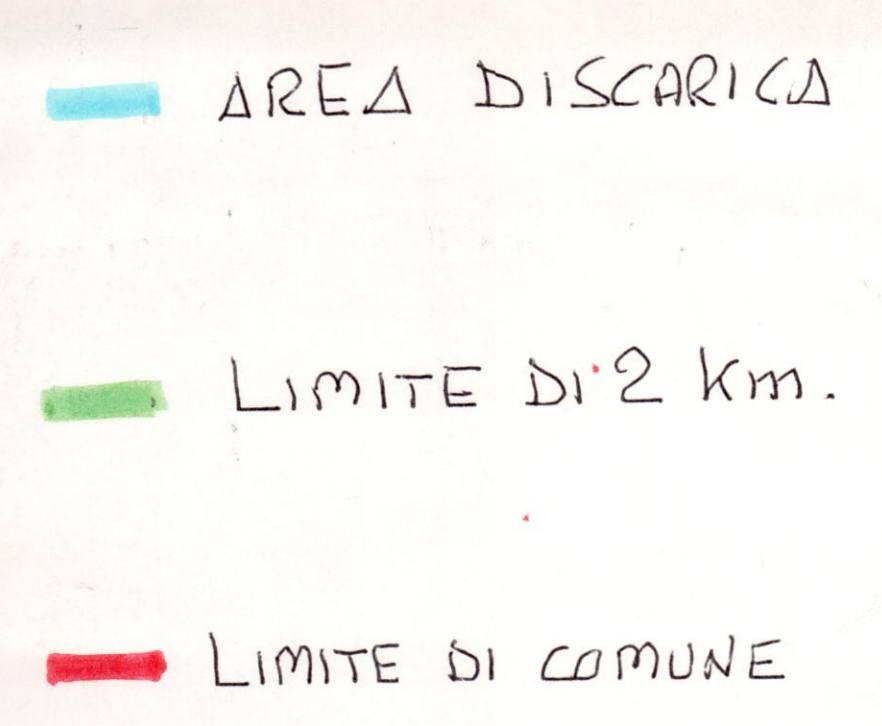 AREA DISCARICA
LIMITE DI 2 Km.
LIMITE DI COMUNE